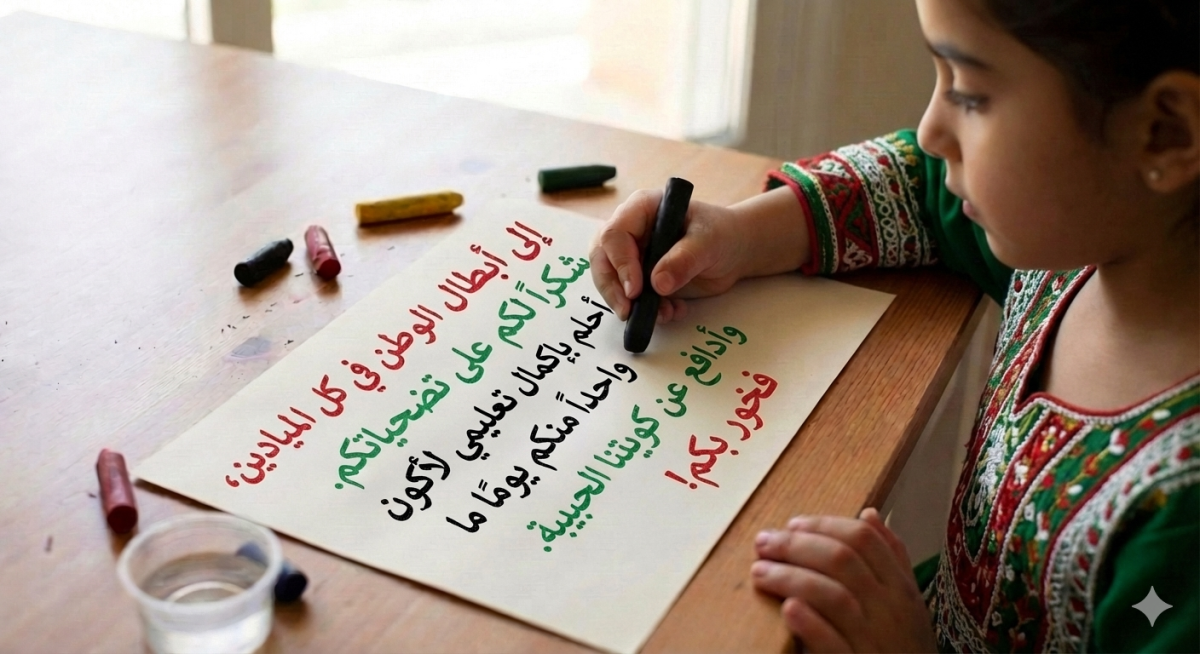 إلى أبطال الوطن في كل الميادين،
شكراً لكم على تضحياتكم.
أحلم بإكمال تعليمي لأكون
واحداً منكم يومًا ما
وأدافع عن كويتنا الحبيبة.
فخور بكم!